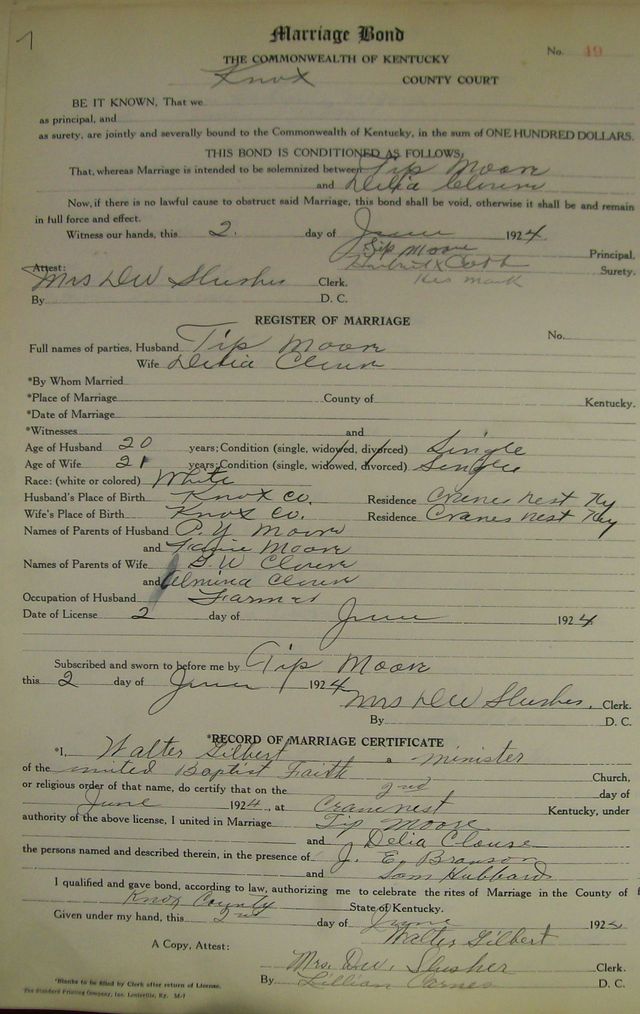 7
Marriage Bond
No. 49
THE COMMONWEALTH OF KENTUCKY
Knox COUNTY COURT
BE IT KNOWN, That we
as principal, and
as surety, are jointly and severally bound to the Commonwealth of Kentucky, in the sum of ONE HUNDRED DOLLARS.
THIS BOND IS CONDITIONED AS FOLLOWS:
That, whereas Marriage is intended to be solemnized between Tip Moore
and Delia Clouse
Now, if there is no lawful cause to obstruct said Marriage, this bond shall be void, otherwise it shall be and remain
in full force and effect.
Witness our hands, this 2. day of June 1924
Tip Moore Principal.
X Cobb Surety.
Attest: his mark
Mrs D W Slusher Clerk.
By D. C.
REGISTER OF MARRIAGE
No.
Full names of parties, Husband Tip Moore
Wife Delia Clouse
*By Whom Married
*Place of Marriage County of Kentucky.
*Date of Marriage
*Witnesses and
Age of Husband 20 years; Condition (single, widowed, divorced) Single
Age of Wife 21 years; Condition (single, widowed, divorced) Single
Race: (white or colored) White
Husband's Place of Birth Knox Co. Residence Cranes nest Ky
Wife's Place of Birth Knox Co. Residence Cranes nest Ky
Names of Parents of Husband P. Y Moore
and Moore
Names of Parents of Wife G. W Clouse
and Almina Clouse
Occupation of Husband Farmer
Date of License 2 day of June 1924
Subscribed and sworn to before me by Tip Moore
this 2 day of June 1924
Mrs D W Slusher. Clerk.
By D. C.
*RECORD OF MARRIAGE CERTIFICATE
*I, Walter Gilbert a minister
of the united Baptist Faith Church,
or religious order of that name, do certify that on the 2nd day of
June 1924, at Cranenest Kentucky, under
authority of the above license, I united in Marriage Tip Moore
and Delia Clouse
the persons named and described therein, in the presence of J. E. Branson
and Sam Hubbard
I qualified and gave bond, according to law, authorizing me to celebrate the rites of Marriage in the County of
Knox County State of Kentucky.
Given under my hand, this 2nd day of June 1924
Walter Gilbert
A Copy, Attest:
Mrs. D.W. Slusher Clerk.
By Lillian D. C.
*Blanks to be filled by Clerk after return of License.
The Standard Printing Company, Inc. Louisville, Ky. M-1